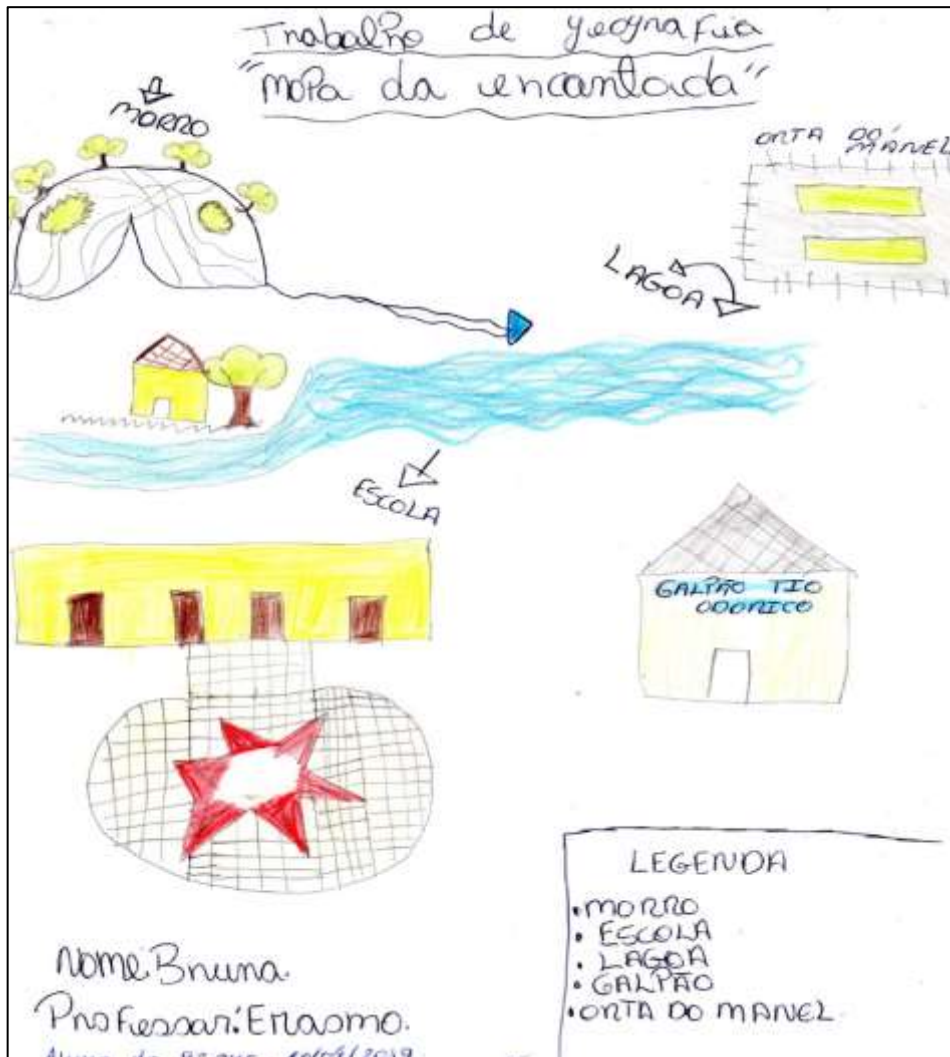 Trabalho de geografia
"mopa da encantada"
MORRO
ORTA DO MANEL
LAGOA
ESCOLA
GALPÃO TIO
ODORICO
LEGENDA
• MORRO
• ESCOLA
• LAGOA
• GALPÃO
• ORTA DO MANEL
Nome: Bruna.
Professor: Erasmo.